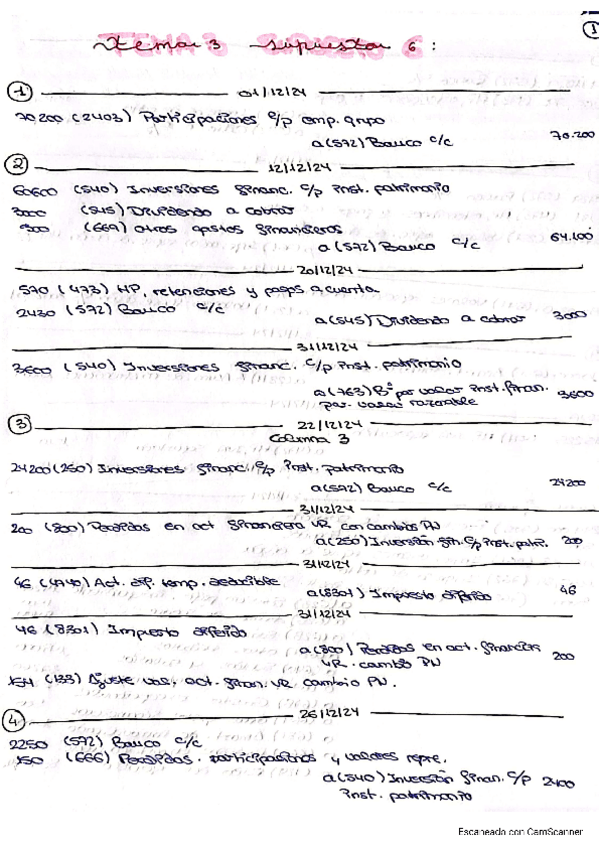 1
Tema 3 supuesto 6:
1 01/12/24
70.200 (2403) Participaciones c/p emp. grupo
a (572) Banco c/c 70.200
2 12/12/24
60600 (540) Inversiones financ. c/p inst. patrimonio
3000 (545) Dividendo a cobrar
500 (669) otros gastos financieros
a (572) Banco c/c 64.100
20/12/24
570 (473) HP, retenciones y pagos a cuenta
2430 (572) Banco c/c
a (545) Dividendo a cobrar 3000
31/12/24
3600 (540) Inversiones financ. c/p inst. patrimonio
a (763) Bº por valor inst. finan. 3600
por valor razonable
3 22/12/24
Columna 3
24200 (250) Inversiones financ. c/p inst. patrimonio
a (572) Banco c/c 24200
31/12/24
200 (800) Perdidas en act financiera VR con cambios PN
a (250) Inversión fin. c/p inst. patri. 200
31/12/24
46 (4740) Act. dif. temp. deducible
a (8301) Impuesto diferido 46
31/12/24
46 (8301) Impuesto diferido
a (800) Perdidas en act. financiera 200
VR. cambio PN
154 (133) Ajuste val, act. finan. VR cambio PN.
4 26/12/24
2250 (572) Banco c/c
150 (666) Perdidas participaciones y valores repre.
a (540) Inversión finan. c/p 2400
inst. patrimonio
Escaneado con CamScanner